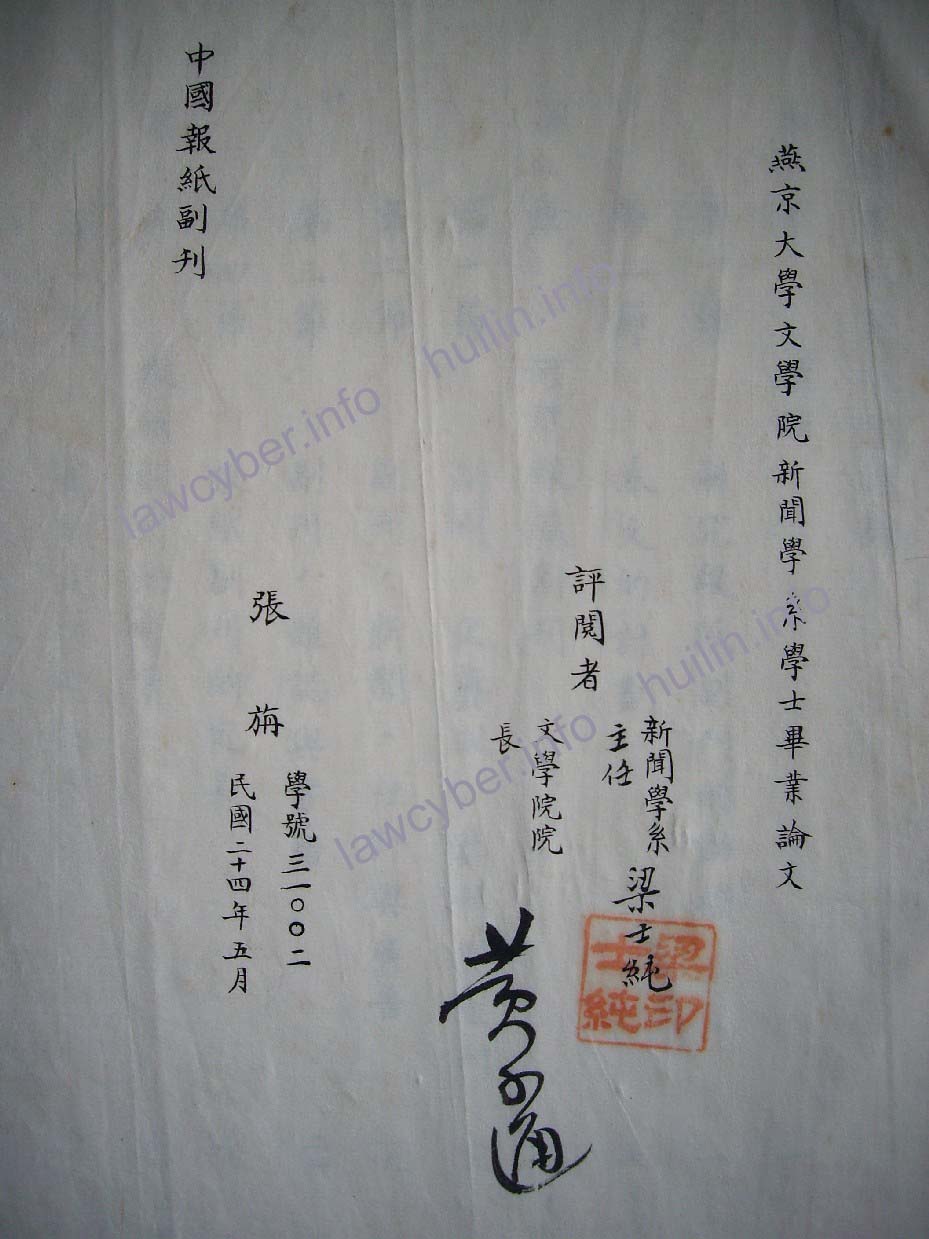 燕京大學文學院新聞學系學士畢業論文
評閱者
新聞學系
主任
梁士純
梁士純印
文學院院
長
黄子通
張 旃
學號三一〇〇二
民國二十四年五月
中國報紙副刋
lawcyber.info huilin.info
lawcyber.info huilin.info